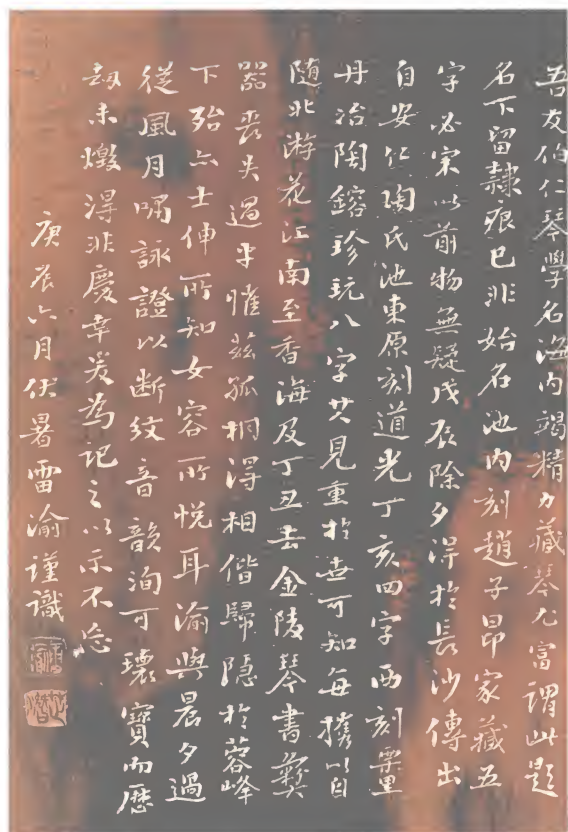 吾友伯仁琴學名海内竭精力藏琴尤富謂此題
名下留隷痕已非始名池内刻趙子昂家藏五
字必宋以前物無疑戊辰除夕淂於長沙傳出
自安仁陶氏池東原刻道光丁亥四字西刻粟里
丹冶陶鎔珍玩八字其見重於世可知每攜以自
隨北游花江南至香海及丁丑去金陵琴書彝
器喪失過半惟兹孤桐淂相偕歸隱於蓉峰
下殆亦士伸所知女容所悅耳渝與晨夕過
從風月嘯詠證以断紋音韻洵可瓌寶而歷
劫未燬淂非慶幸爰為記之以示不忘
庚辰六月伏暑雷渝謹識